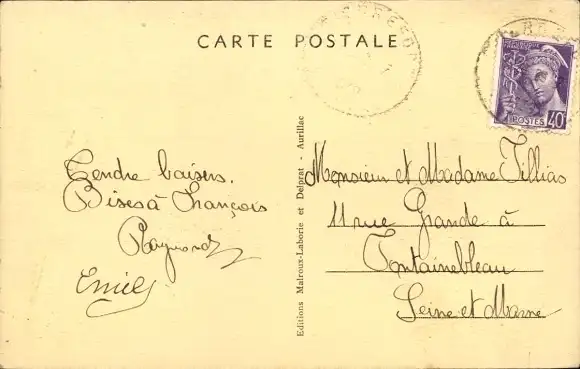 CARTE POSTALE
POSTES
40
Tendre baisers.
Bises à François
Raymond
Emile
Editions Malroux-Laborie et Delprat - Aurillac
Monsieur et Madame Tillias
11 rue Grande à
Fontainebleau
Seine et Marne